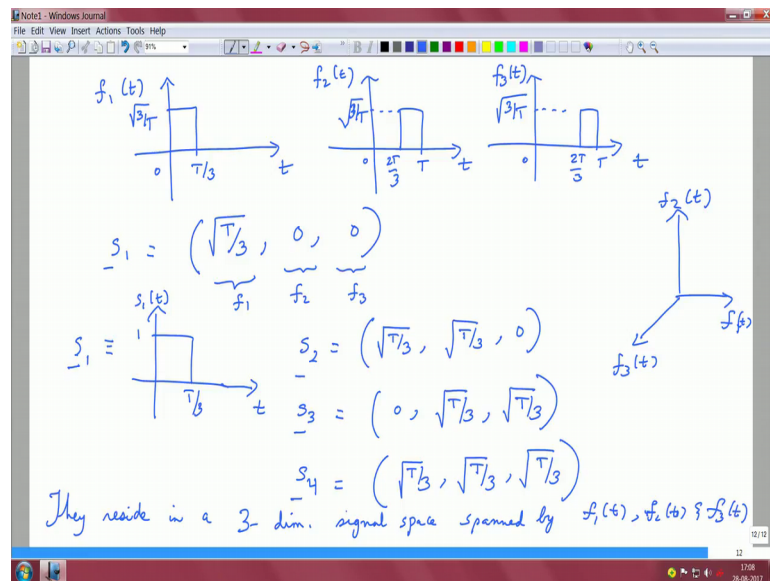 Note1 - Windows Journal
File Edit View Insert Actions Tools Help
91%
f₁(t)
√3/T
0 T/3 t
f₂(t)
√3/T
0 2T/3 T t
f₃(t)
√3/T
0 2T/3 T t
s₁ = (√T/3, 0, 0)
f₁ f₂ f₃
f₂(t)
f(t)
f₃(t)
s₁ ≡
s₁(t)
1
T/3 t
s₂ = (√T/3, √T/3, 0)
s₃ = (0, √T/3, √T/3)
s₄ = (√T/3, √T/3, √T/3)
They reside in a 3-dim. signal space spanned by f₁(t), f₂(t) & f₃(t)
12/12
12
17:08
28-08-2017